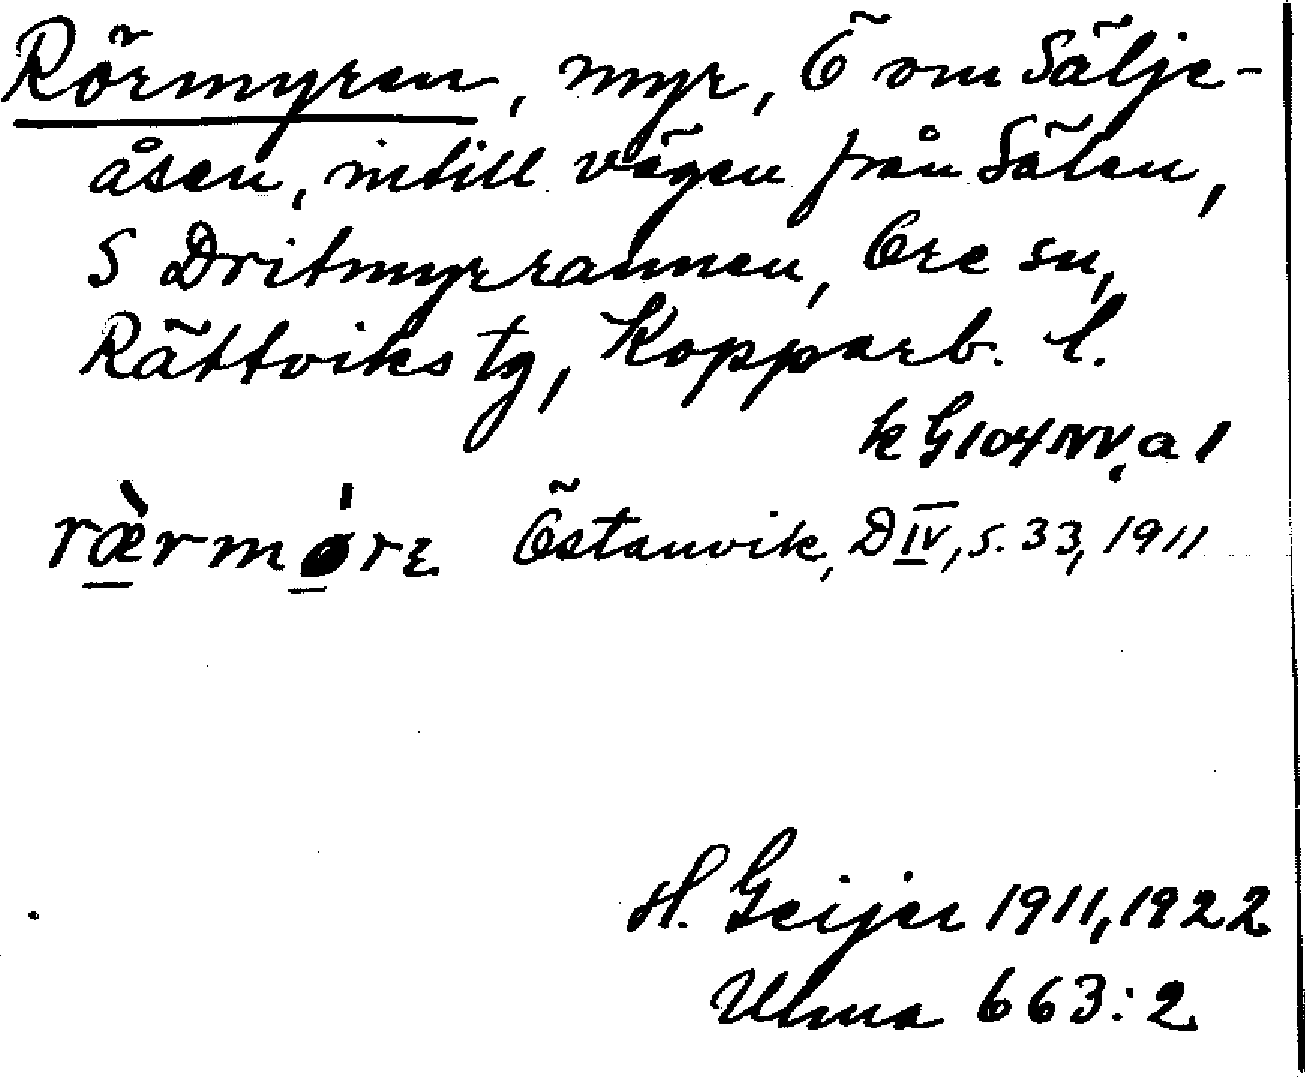 Rörmyren, myr, Ö om Sälje-
åsen, intill vägen från Sälen,
S Dritmyrrannen, Ore sn,
Rättviks tg, Kopparb. l.
k G104NV, a 1
ræ̀rmørɛ Östanvik, D IV, s. 33, 1911
H. Geijer 1911, 1922
Ulma 663:2